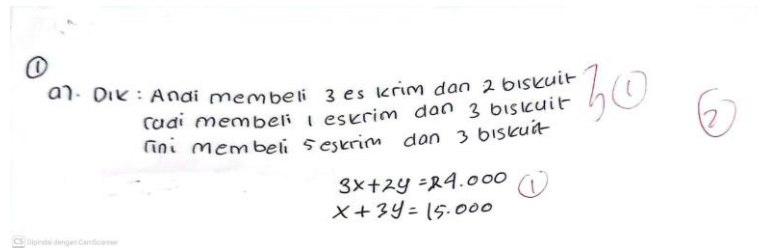 ①
a). Dik : Andi membeli 3 es krim dan 2 biskuit
radi membeli 1 eskrim dan 3 biskuit
rini membeli 5 eskrim dan 3 biskuit
①
2
3x+2y = 24.000 ①
x + 3y = 15.000
CS Dipindai dengan CamScanner